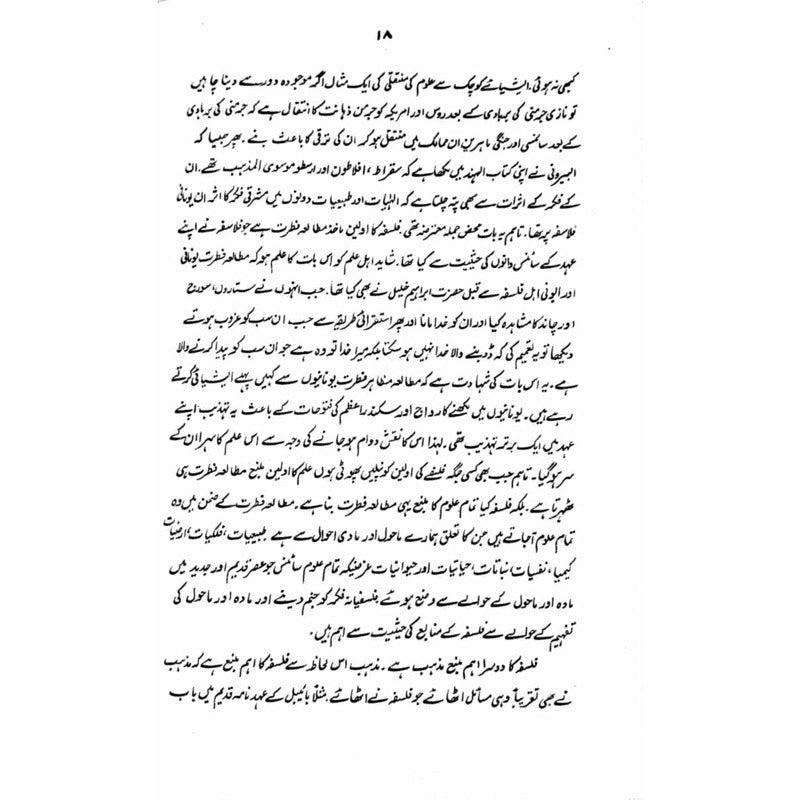 ۱۸
کبھی نہ ہوئی۔ ایشیائے کوچک سے علوم کی منتقلی کی ایک مثال اگر موجودہ دور سے دینا چاہیں
تو نازی جرمنی کی بربادی کے بعد روس اور امریکہ کو جرمن ذہانت کا انتقال ہے کہ جرمنی کی بربادی
کے بعد سائنسی اور جنگی ماہرین ان ممالک میں منتقل ہو کر ان کی ترقی کا باعث بنے۔ پھر جیسا کہ
البیرونی نے اپنی کتاب الہند میں لکھا ہے کہ سقراط، افلاطون اور ارسطو موسوی المذہب تھے۔ ان
کے فکر کے اثرات سے بھی پتہ چلتا ہے کہ الٰہیات اور طبیعیات دونوں میں مشرقی فکر کا اثر ان یونانی
فلاسفہ پر تھا۔ تاہم یہ بات محض جملہ معترضہ تھی۔ فلسفہ کا اولین ماخذ مطالعہ فطرت ہے جو فلاسفہ نے اپنے
عہد کے سائنس دانوں کی حیثیت سے کیا تھا۔ شاید اہل علم کو اس بات کا علم ہو کہ مطالعہ فطرت یونانی
اور ایونی اہل فلسفہ سے قبل حضرت ابراہیم خلیل نے بھی کیا تھا۔ جب انہوں نے ستاروں، سورج
اور چاند کا مشاہدہ کیا اور ان کو خدا مانا اور پھر استقرائی طریقہ سے جب ان سب کو غروب ہوتے
دیکھا تو یہ تعمیم کی کہ ڈوبنے والا خدا نہیں ہو سکتا بلکہ میرا خدا تو وہ ہے جو ان سب کو پیدا کرنے والا
ہے۔ یہ اس بات کی شہادت ہے کہ مطالعہ مظاہر فطرت یونانیوں سے کہیں پہلے ایشیائی کرتے
رہے ہیں۔ یونانیوں میں لکھنے کا رواج اور سکندر اعظم کی فتوحات کے باعث یہ تہذیب اپنے
عہد میں ایک برتر تہذیب تھی۔ لہذا اس کا نقش دوام ہو جانے کی وجہ سے اس علم کا سہرا ان کے
سر ہو گیا۔ تاہم جب بھی کسی جگہ فلسفے کی اولین کونپلیں پھوٹی ہوں علم کا اولین منبع مطالعہ فطرت ہی
ٹھہرتا ہے۔ بلکہ فلسفہ کیا تمام علوم کا منبع یہی مطالعہ فطرت بنا ہے۔ مطالعہ فطرت کے ضمن میں وہ
تمام علوم آجاتے ہیں جن کا تعلق ہمارے ماحول اور مادی احوال سے ہے طبیعیات، فلکیات، ارضیات
کیمیا، نفسیات نباتات، حیاتیات اور حیوانیات غرضیکہ تمام علوم سائنسی جو عصر قدیم اور جدید میں
مادہ اور ماحول کے حوالے سے وضع ہوئے فلسفیانہ فکر کو جنم دینے اور مادہ اور ماحول کی
تفہیم کے حوالے سے فلسفہ کے منابع کی حیثیت سے اہم ہیں۔
فلسفہ کا دوسرا اہم منبع مذہب ہے۔ مذہب اس لحاظ سے فلسفہ کا اہم منبع ہے کہ مذہب
نے بھی تقریباً وہی مسائل اٹھائے جو فلسفہ نے اٹھائے مثلاً بائیبل کے عہد نامہ قدیم میں باب